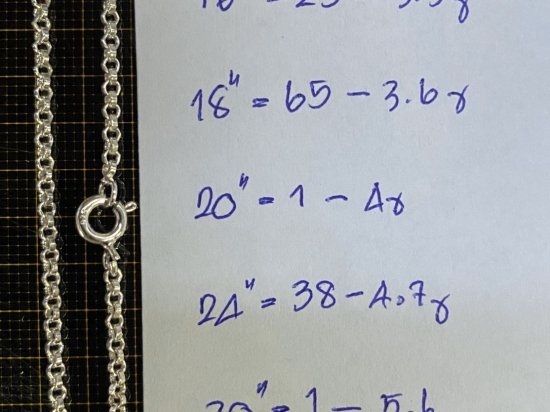 18" = 65 - 3.6g
20" = 1 - 4g
24" = 38 - 4.7g
= 1 - 5.6